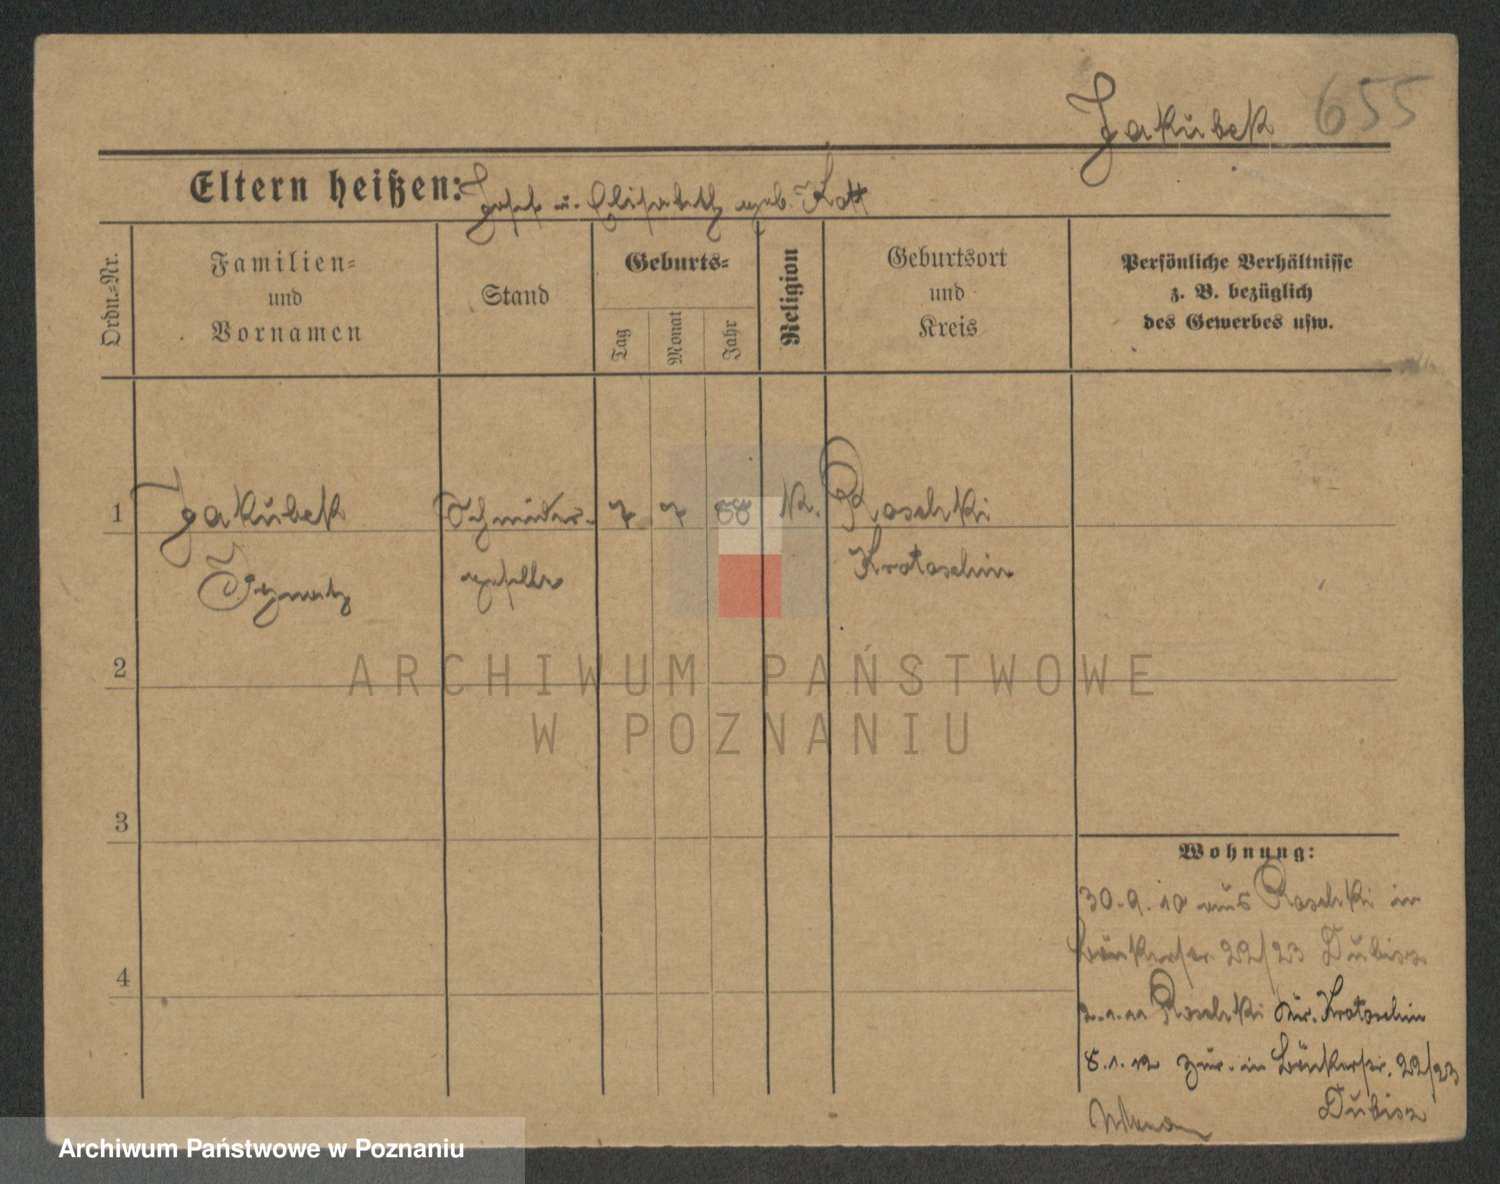 Jakubek 655
Eltern heißen: Josef u. Elisabeth geb. Kott
Ordn.-Nr.
Familien-
und
Vornamen
Stand
Geburts-
Tag
Monat
Jahr
Religion
Geburtsort
und
Kreis
Persönliche Verhältnisse
z. B. bezüglich
des Gewerbes usw.
1 Jakubek Schneider- 7 7 88 k. Roschki
Ignatz geselle Krotoschin
2
3
4
Wohnung:
30.9.10 aus Roschki in
22/23 Dubisz
2.1.11 Roschki Kr. Krotoschin
8.1.12 zur. in 22/23
Dubisz
ARCHIWUM PAŃSTWOWE
W POZNANIU
Archiwum Państwowe w Poznaniu